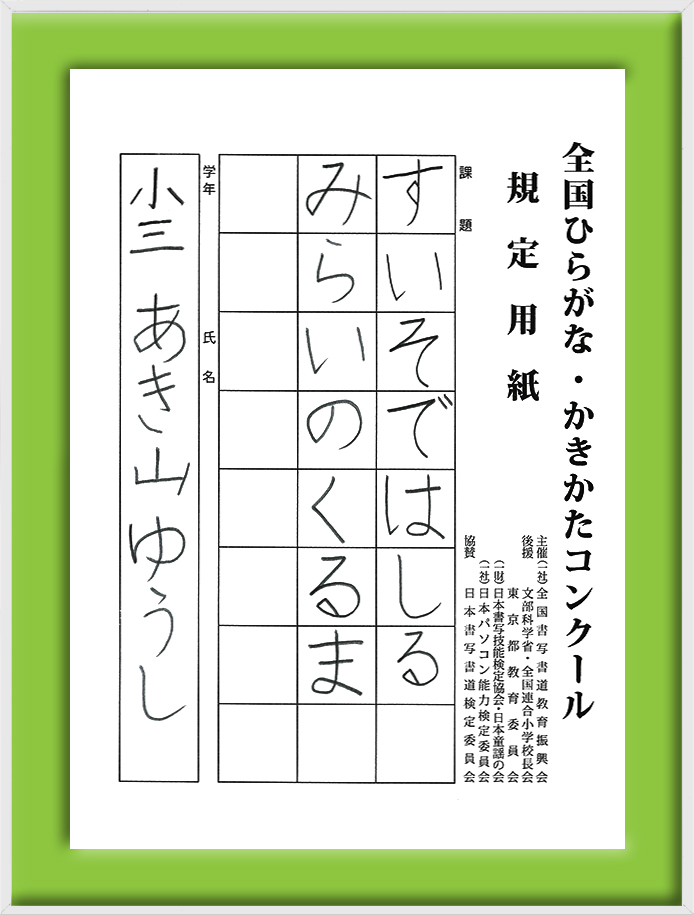 全国ひらがな・かきかたコンクール
規定用紙
主催(一社)全国書写書道教育振興会
後援 文部科学省・全国連合小学校長会
東京都教育委員会
(一財)日本書写技能検定協会・日本童謡の会
(一社)日本パソコン能力検定委員会
協賛 日本書写書道検定委員会
課題
すいそではしる
みらいのくるま
学年 氏名
小三 あき山ゆうし